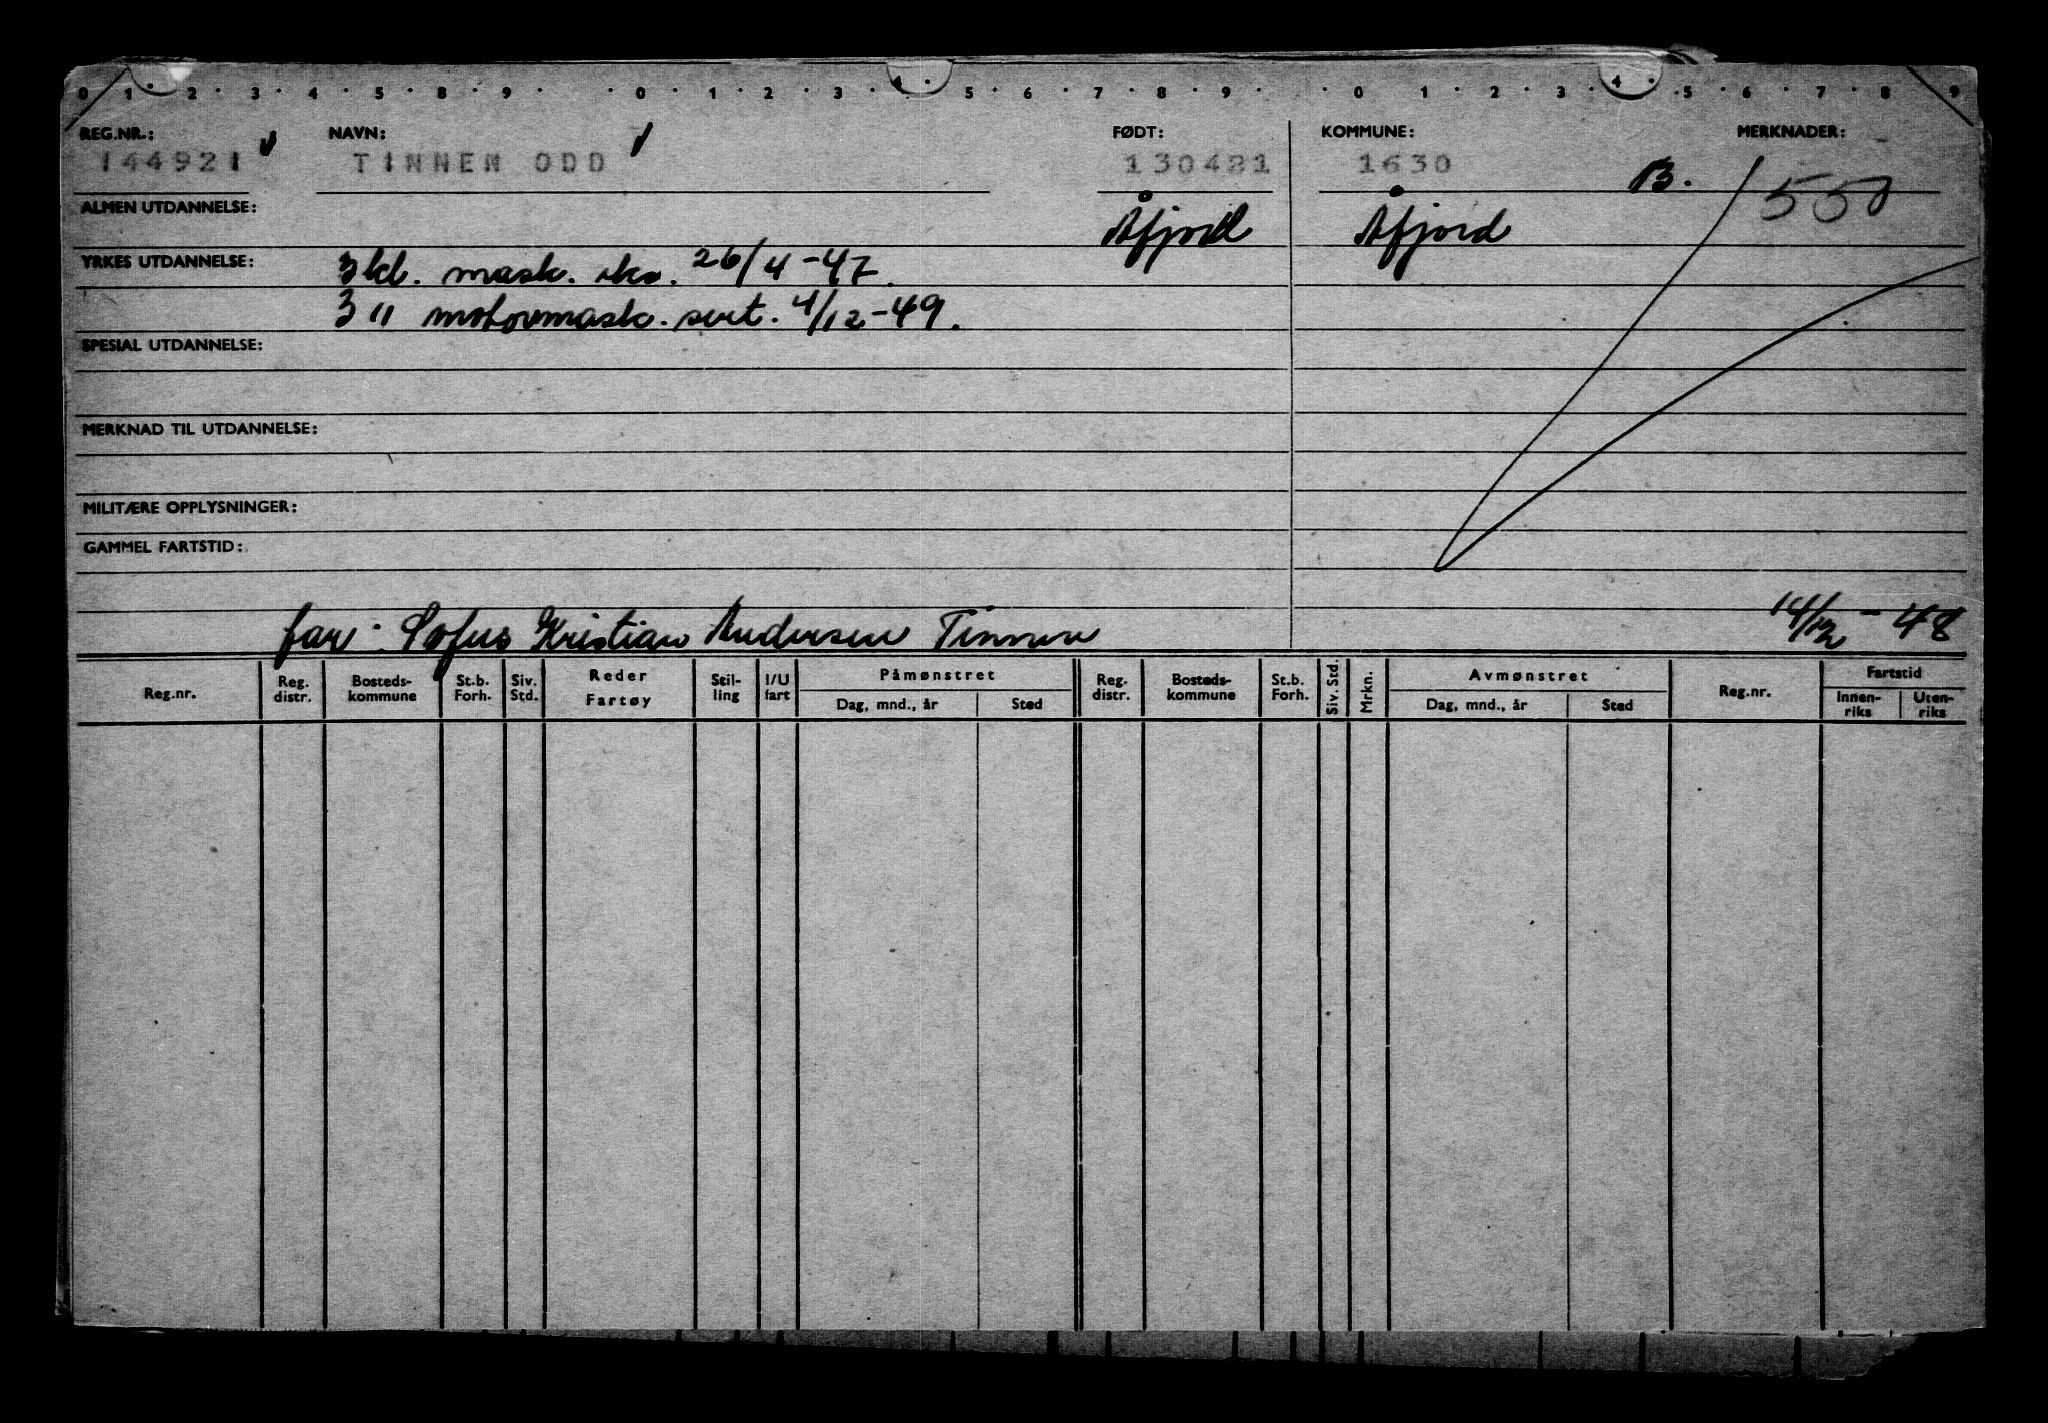 0 1 2 3 4 5 8 9 0 1 2 3 4 5 6 7 8 9 0 1 2 3 4 5 6 7 8 9
REG.NR.: NAVN: FØDT: KOMMUNE: MERKNADER:
144921 TINNEN ODD 130421 1630 B. 550
ALMEN UTDANNELSE: Åfjord Åfjord
YRKES UTDANNELSE: 3 kl. mask. eks. 26/4-47.
3 " motormask. sert. 4/12-49.
SPESIAL UTDANNELSE:
MERKNAD TIL UTDANNELSE:
MILITÆRE OPPLYSNINGER:
GAMMEL FARTSTID:
far: Sofus Kristian Andersen Tinnen 14/12-48
Reg.nr. Reg. distr. Bosteds-kommune St.b. Forh. Siv. Std. Reder Fartøy Stil-ling I/U fart Påmønstret Dag, mnd., år Sted Reg. distr. Bosteds-kommune St.b. Forh. Siv. Std. Mrkn. Avmønstret Dag, mnd., år Sted Reg.nr. Fartstid Innen-riks Uten-riks